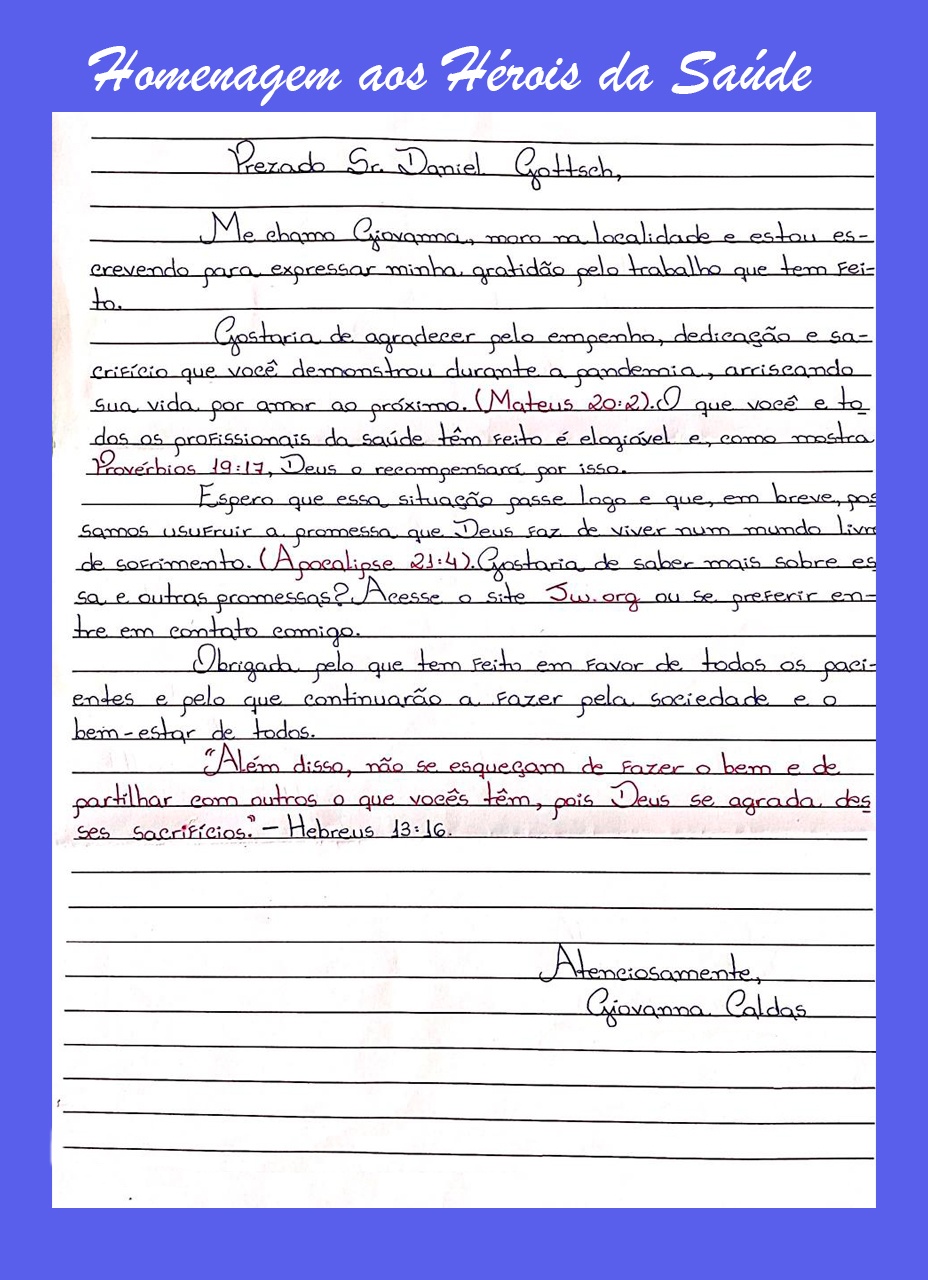 Homenagem aos Hérois da Saúde
Prezado Sr. Daniel Gottsch,
Me chamo Giovanna, moro na localidade e estou es-
crevendo para expressar minha gratidão pelo trabalho que tem fei-
to.
Gostaria de agradecer pelo empenho, dedicação e sa-
crifício que você demonstrou durante a pandemia, arriscando
sua vida por amor ao próximo. (Mateus 20:2). O que você e to
dos os profissionais da saúde têm feito é elogiável e, como mostra
Provérbios 19:17, Deus o recompensará por isso.
Espero que essa situação passe logo e que, em breve, pos
samos usufruir a promessa que Deus faz de viver num mundo livre
de sofrimento. (Apocalipse 21:4). Gostaria de saber mais sobre es
sa e outras promessas? Acesse o site Jw.org ou se preferir en-
tre em contato comigo.
Obrigada pelo que tem feito em favor de todos os paci-
entes e pelo que continuarão a fazer pela sociedade e o
bem-estar de todos.
"Além disso, não se esqueçam de fazer o bem e de
partilhar com outros o que vocês têm, pois Deus se agrada des
ses sacrifícios." - Hebreus 13:16.
Atenciosamente,
Giovanna Caldas